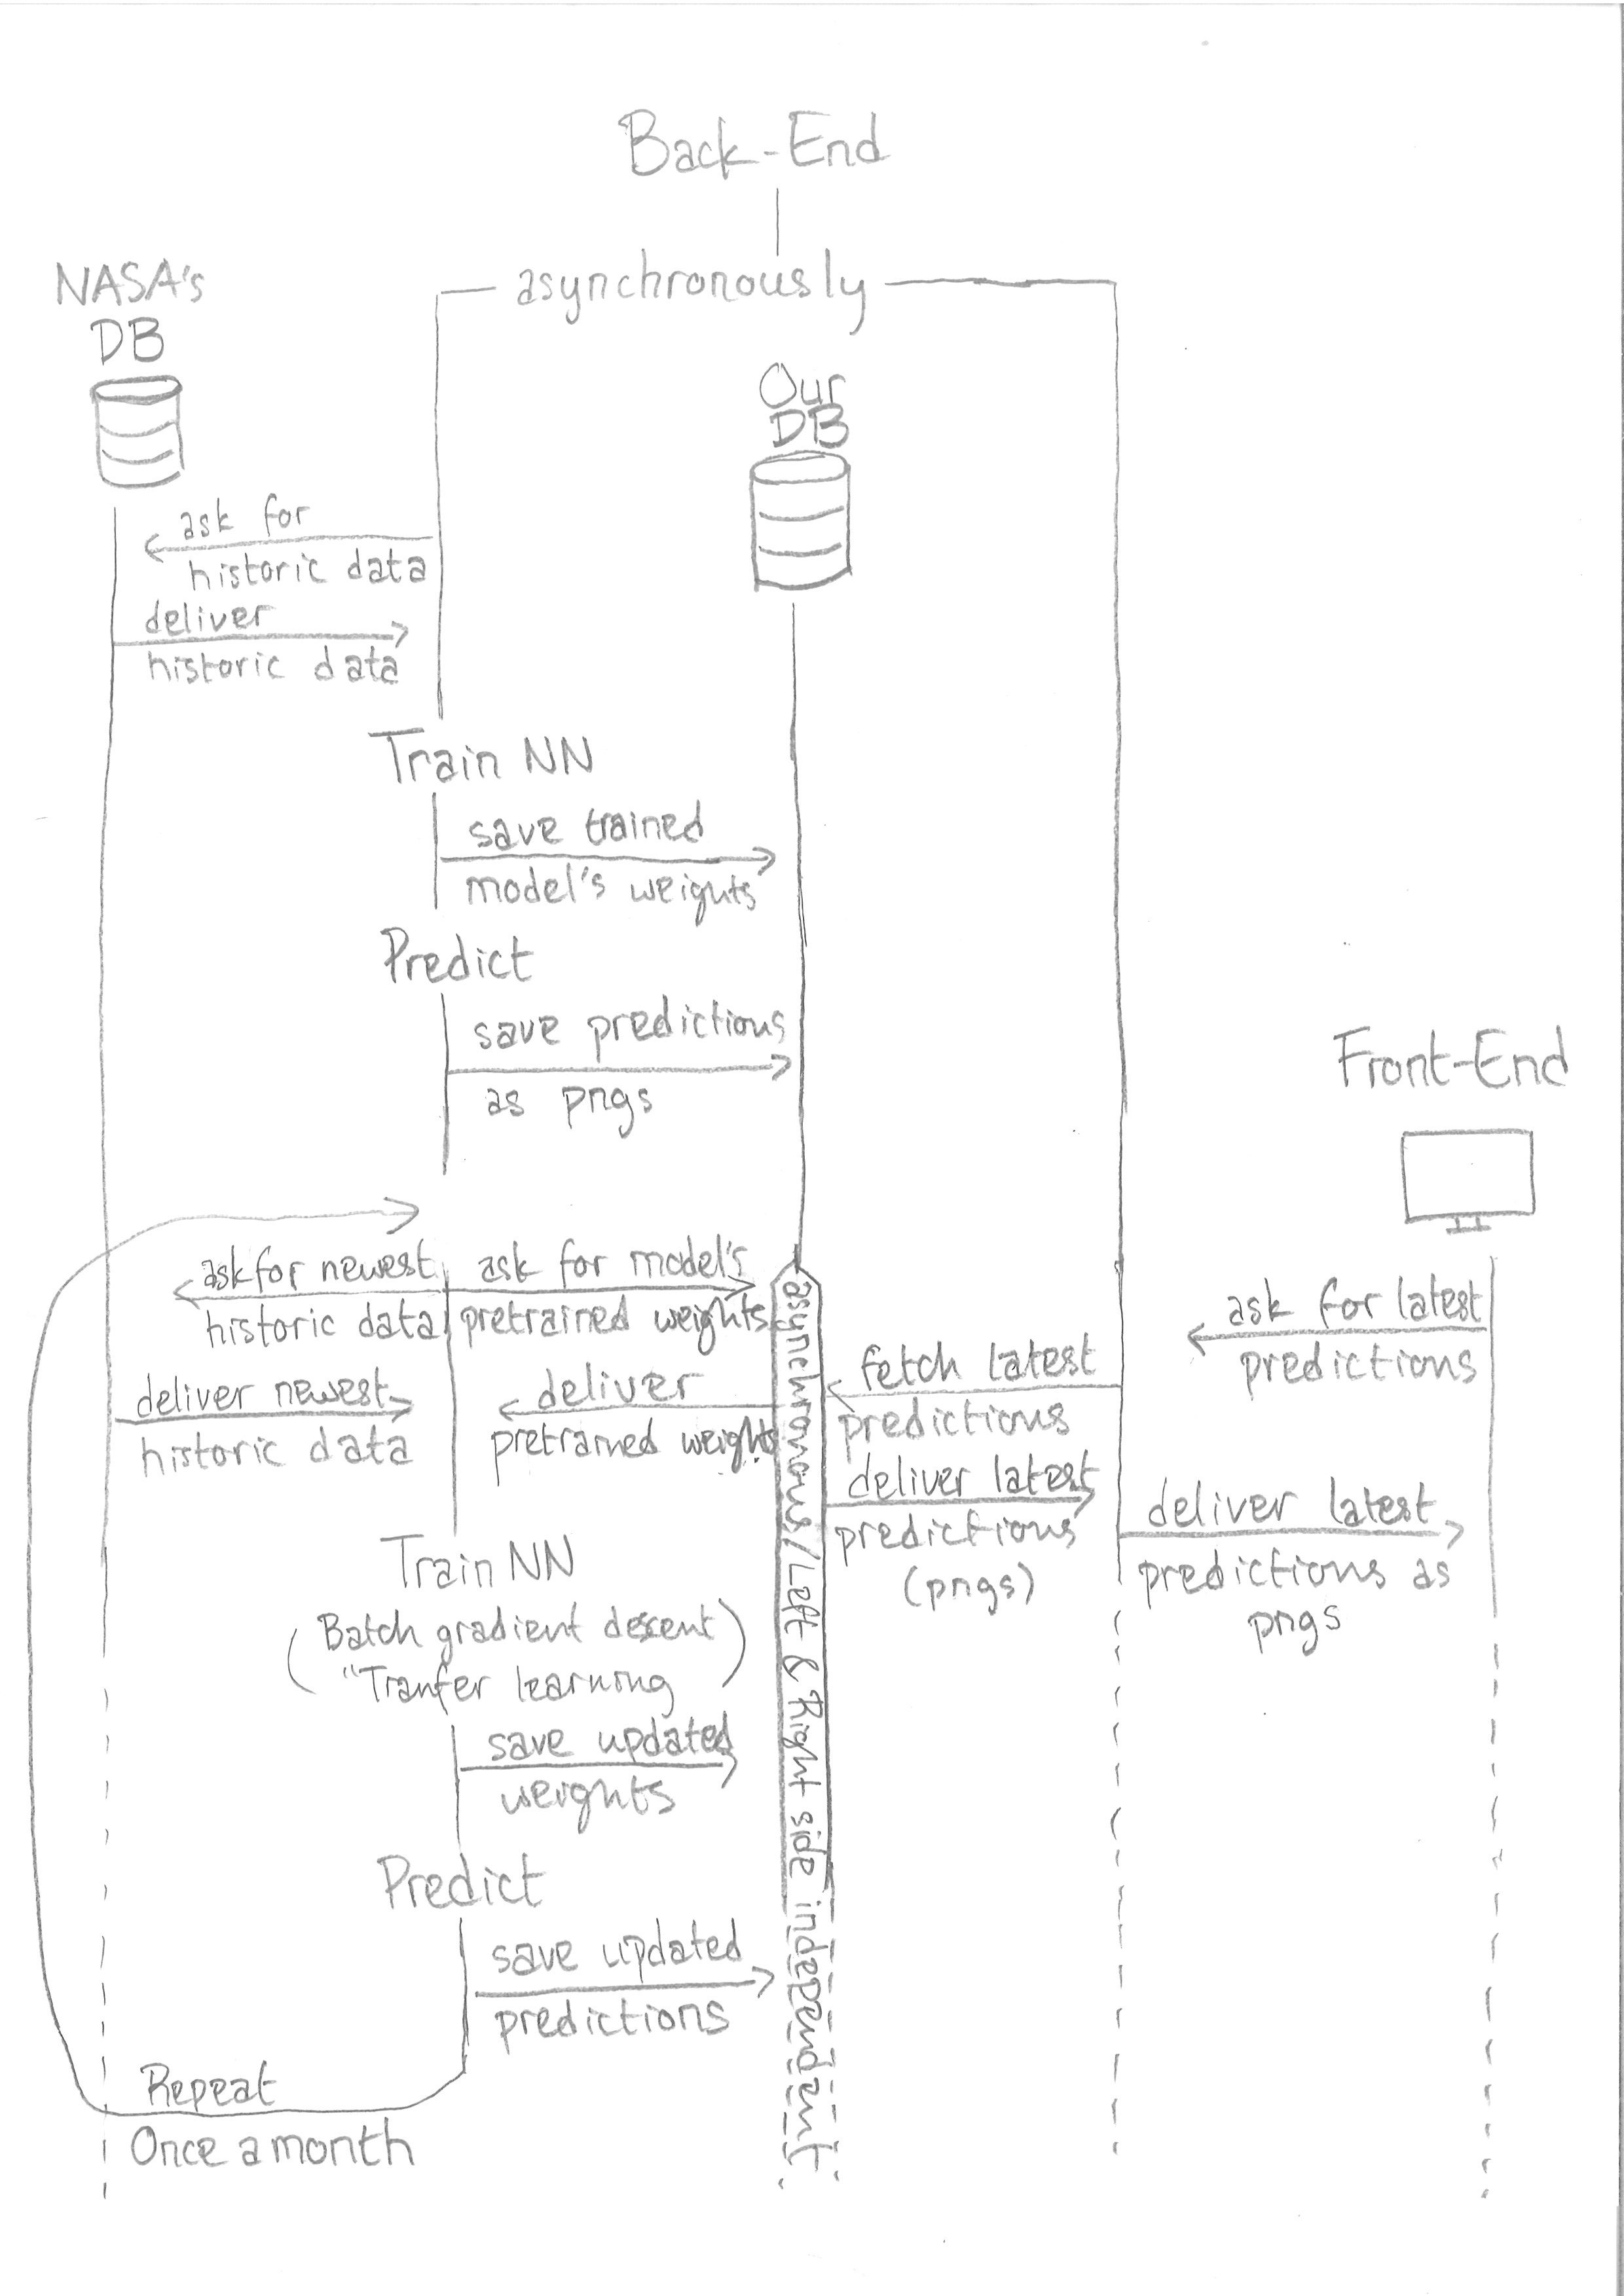 Back-End
asynchronously
NASA's
DB
Our
DB
ask for
historic data
deliver
historic data
Train NN
save trained
model's weights
Predict
save predictions
as pngs
Front-End
ask for newest
historic data
ask for model's
pretrained weights
deliver newest
historic data
deliver
pretrained weights
asynchronous/Left & Right side independent
ask for latest
predictions
fetch latest
predictions
deliver latest
predictions
(pngs)
deliver latest
predictions as
pngs
Train NN
(Batch gradient descent)
"Tranfer learning
save updated
weights
Predict
save updated
predictions
Repeat
Once a month